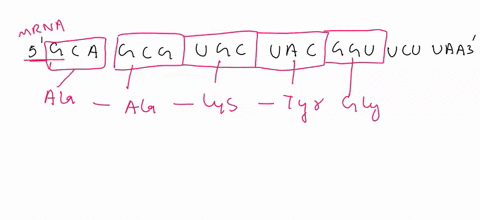 mRNA
5' GCA GCG UGC UAC GGU UCU UAA3'
Ala - Ala - Cys - Tyr Gly